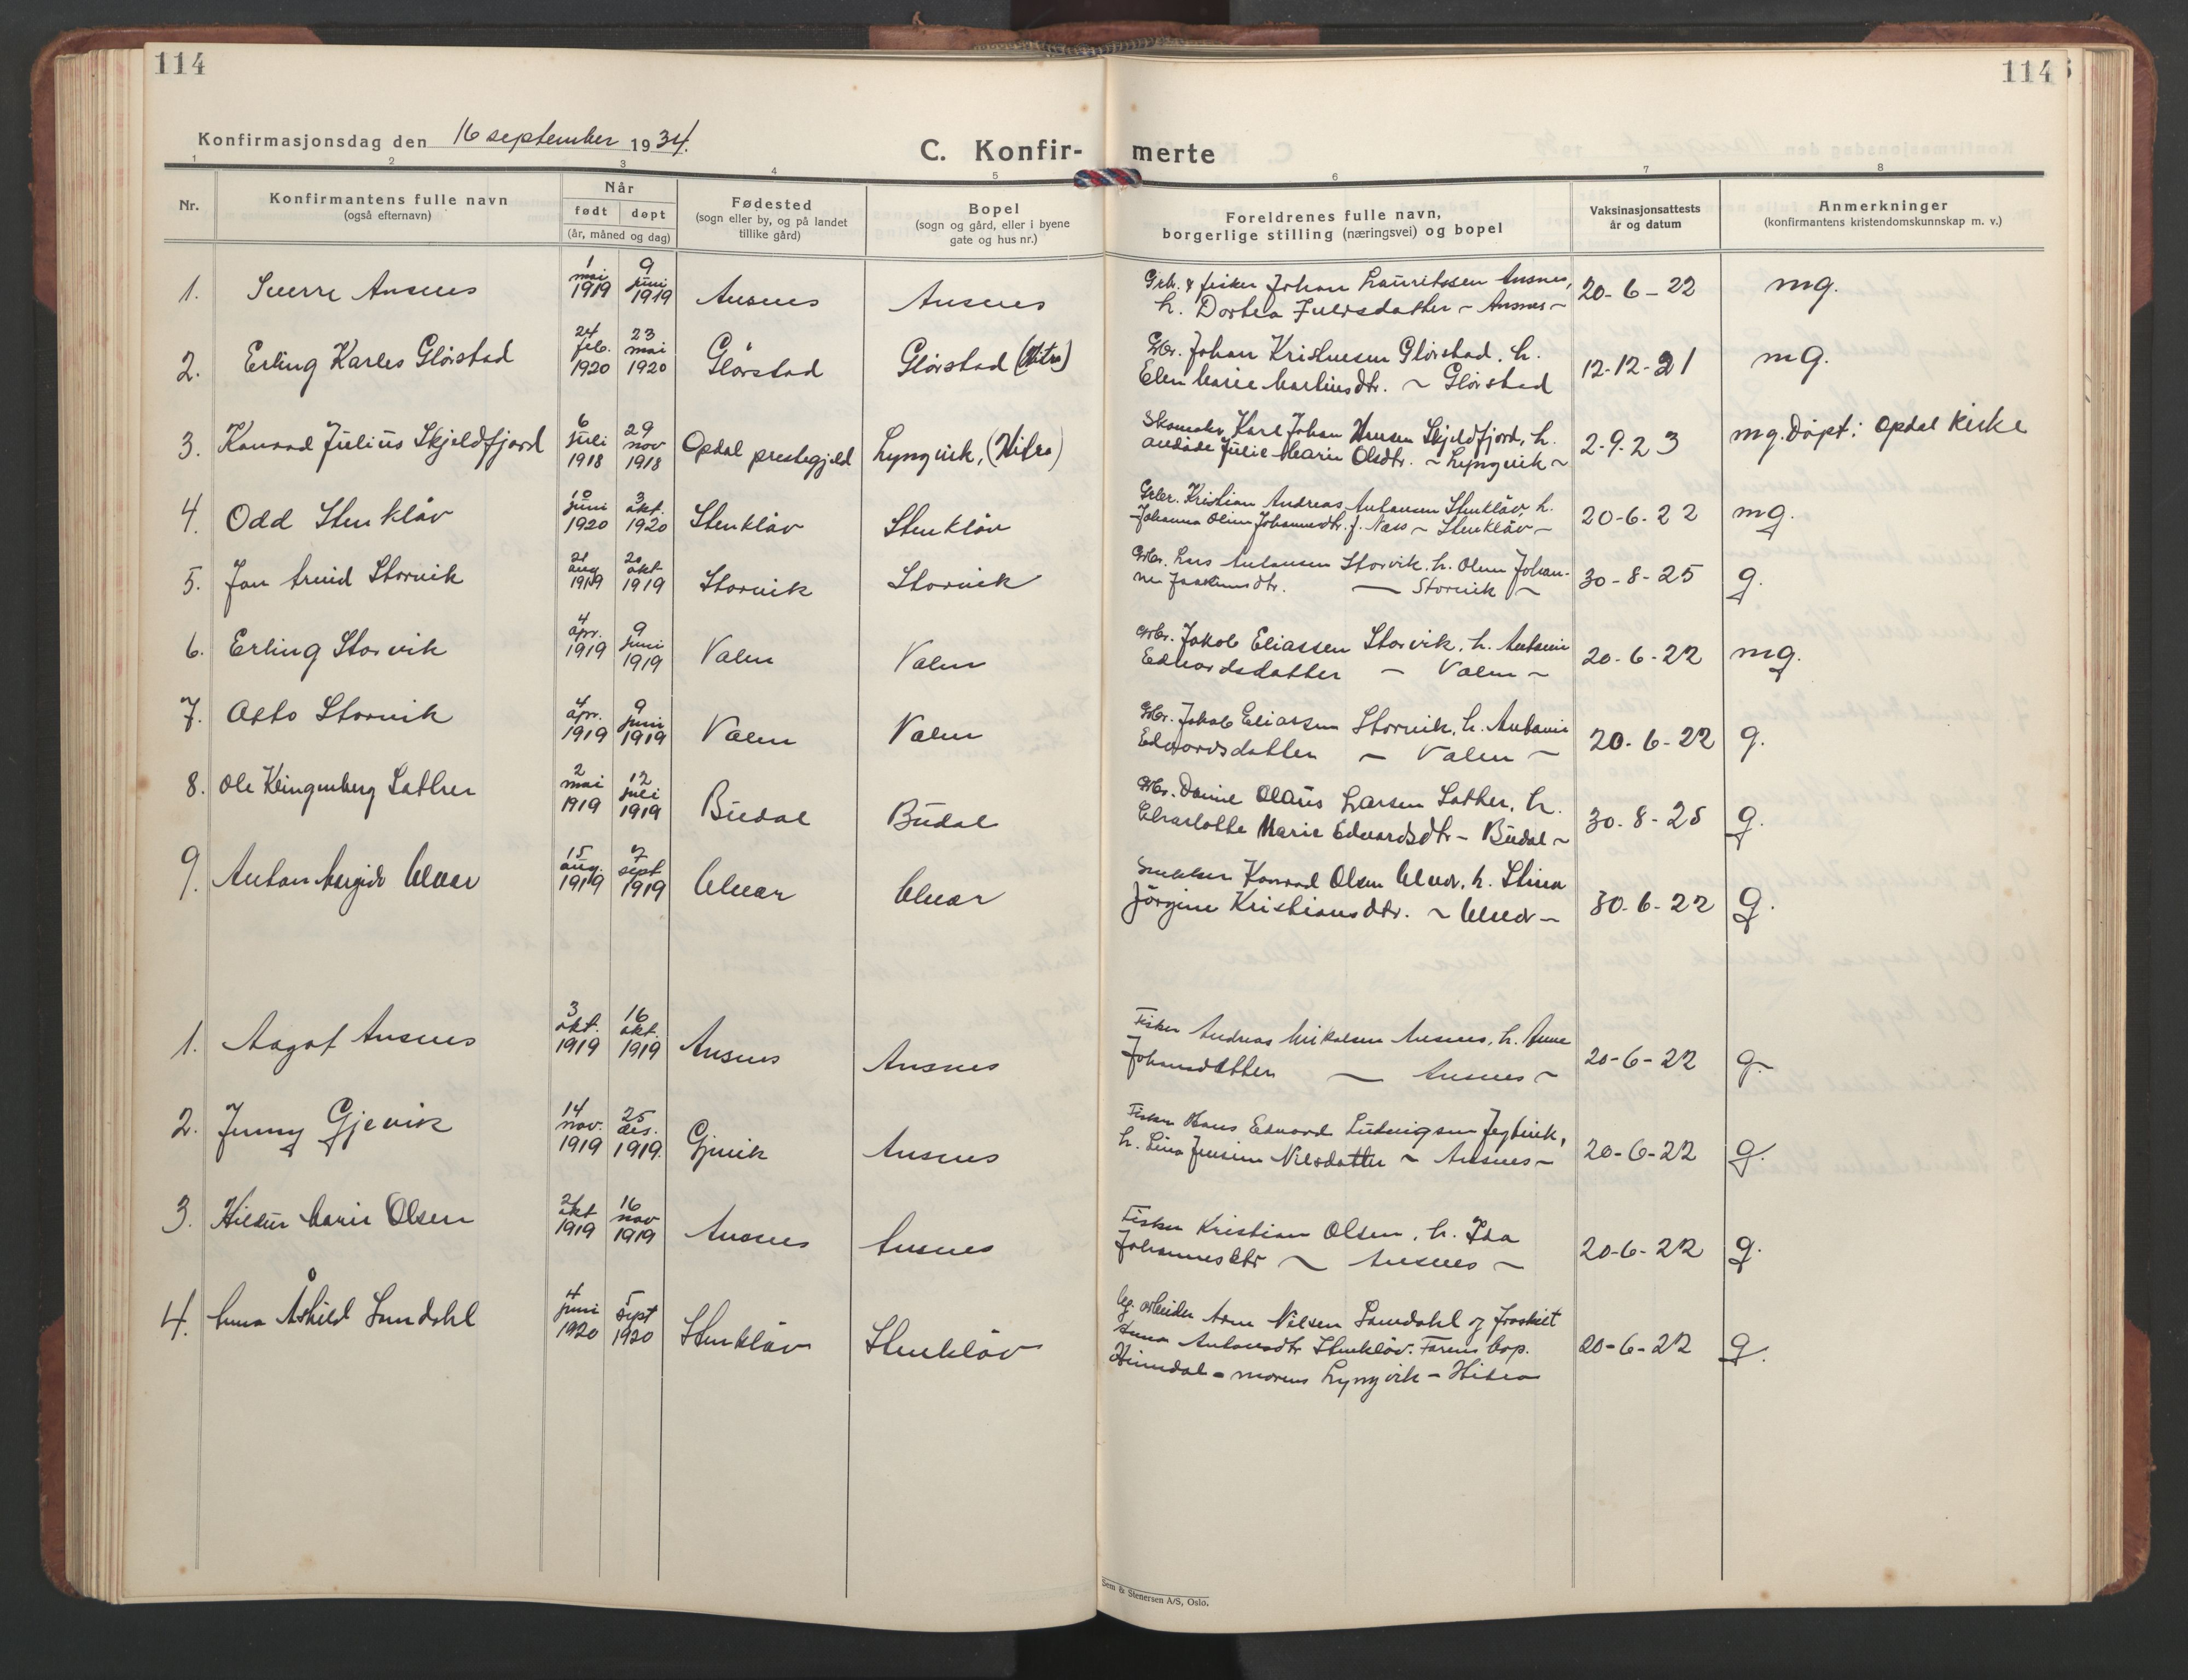 114
114
Konfirmasjonsdag den 16 september 1934.
C. Konfir- merte
1 2 3 4 5 6 7 8
Nr.
Konfirmantens fulle navn
(også efternavn)
Når
født døpt
(år, måned og dag)
Fødested
(sogn eller by, og på landet
tillike gård)
Bopel
(sogn og gård, eller i byene
gate og hus nr.)
Foreldrenes fulle navn,
borgerlige stilling (næringsvei) og bopel
Vaksinasjonsattests
år og datum
Anmerkninger
(konfirmantens kristendomskunnskap m. v.)
1. Sverre Ansnes 1 mai 1919 9 juni 1919 Ansnes Ansnes
Johan Lauritssen Ansnes,
h. Dortea - Ansnes -
20-6-22 mg.
2. Erling Karles Glørstad 24 feb. 1920 23 mai 1920 Glørstad Glørstad (Hitra)
Gbr. Johan Kristensen Glørstad. h.
Elen Marie Martinsdtr. ~ Glørstad
12-12-21 mg.
3. Konrad Julius Skjeldfjord 6 juli 1918 29 nov 1918 Opdal prestegjeld Lyngvik, (Hitra)
Skomaker Karl Johan Hansen Skjeldfjord, h.
avdøde Julie Marie Olsdtr. ~ Lyngvik ~
2-9-23 mg. Døpt i Opdal kirke
4. Odd Stenkløv 10 juni 1920 3 okt. 1920 Stenkløv Stenkløv
Kristian Andreas Antonsen Stenkløv, h.
Johanna Oline Johannesdtr. f. Næss ~ Stenkløv ~
20-6-22 mg.
5. Jan Arvid Storvik 21 aug 1919 20 okt 1919 Storvik Storvik
Gbr. Lars Antonsen Storvik. h. Oline Johan-
ne — Storvik ~
30-8-25 g.
6. Erling Storvik 4 apr. 1919 9 juni 1919 Valen Valen
Gbr. Jakob Eliassen Storvik, h. Antonie
Edvardsdatter — Valen ~
20-6-22 mg.
7. Otto Storvik 4 apr. 1919 9 juni 1919 Valen Valen
Gbr. Jakob Eliassen Storvik, h. Antonie
Edvardsdatter — Valen —
20-6-22 g.
8. Ole Klingenberg Sæther 2 mai 1919 12 juli 1919 Budal Budal
Gbr. Olaus Larsen Sæther, h.
Charlotte Marie Edvardsdtr - Budal ~
30-8-25 g.
9. Anton Ulvær 15 aug. 1919 7 sept 1919 Ulvær Ulvær
Snekker Konrad Olsen Ulvær. h. Stina
Jørgine Kristiansdtr. ~ Ulvær —
30-6-22 g.
1. Aagot Ansnes 3 okt. 1919 16 okt. 1919 Ansnes Ansnes
Fisker Andreas Mikalsen Ansnes, h. Anne
Johansdatter — Ansnes ~
20-6-22 g.
2. Jenny Gjevik 14 nov. 1919 25 des. 1919. Gjevik Ansnes
Fisker Hans Edvard Ludvigsen
h. Lina Jensine Nilsdatter ~ Ansnes ~
20-6-22 g.
3. Hildur Marie Olsen okt 1919 16 nov 1919 Ansnes Ansnes
Fisker Kristian Olsen, h. Ida
Johannesdtr ~ Ansnes ~
20-6-22 g.
4. Anna Åshild Samdahl 4 juni 1920 5 sept 1920 Stenkløv Stenkløv
arbeider Arne Nilsen Samdahl og fraskilt
Anna Antonsdtr Stenkløv. Farens bop.
Heimdal - morens Lyngvik - Hitra
20-6-22 g.
Sem & Stenersen A/S, Oslo.